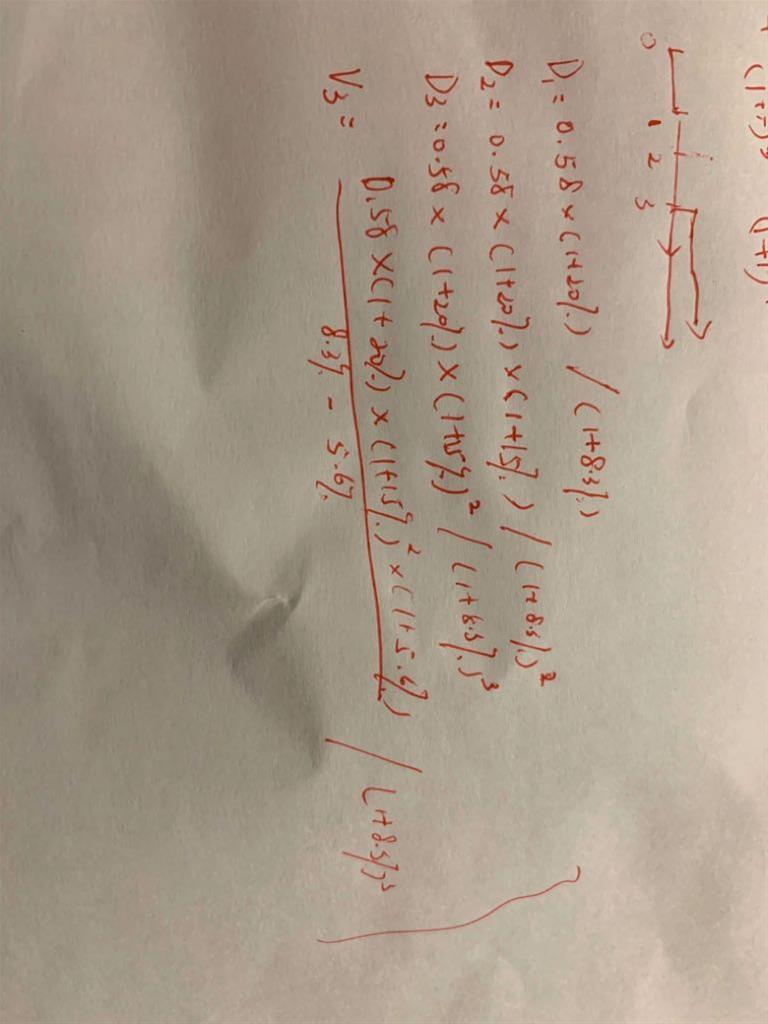 (1+r)³ (1+1)
0 1 2 3
D₁ = 0.58 × (1+20%) / (1+8.3%)
D₂ = 0.58 × (1+20%) × (1+15%) / (1+8.3%)²
D₃ = 0.58 × (1+20%) × (1+15%)² / (1+8.3%)³
V₃ = 0.58 × (1+20%) × (1+15%)² × (1+5.6%) / (1+8.3%)³
8.3% - 5.6%